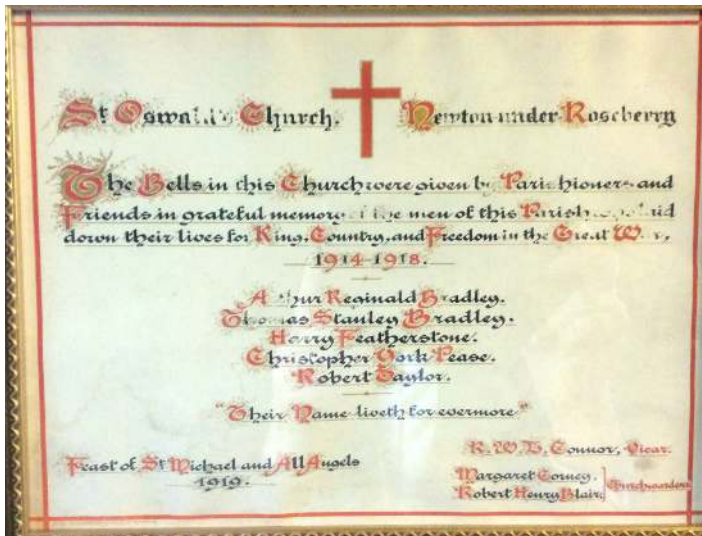 St Oswald's Church. Newton under Roseberry
The Bells in this Church were given by Parishioners and
Friends in grateful memory of the men of this Parish who laid
down their lives for King, Country, and Freedom in the Great War,
1914-1918.
Arthur Reginald Bradley.
Thomas Stanley Bradley.
Harry Featherstone.
Christopher York Pease.
Robert Taylor.
"Their Name liveth for evermore"
Feast of St Michael and All Angels
1919.
R. W. Connor, Vicar.
Margaret Corney.
Robert Henry Blair,
Churchwardens